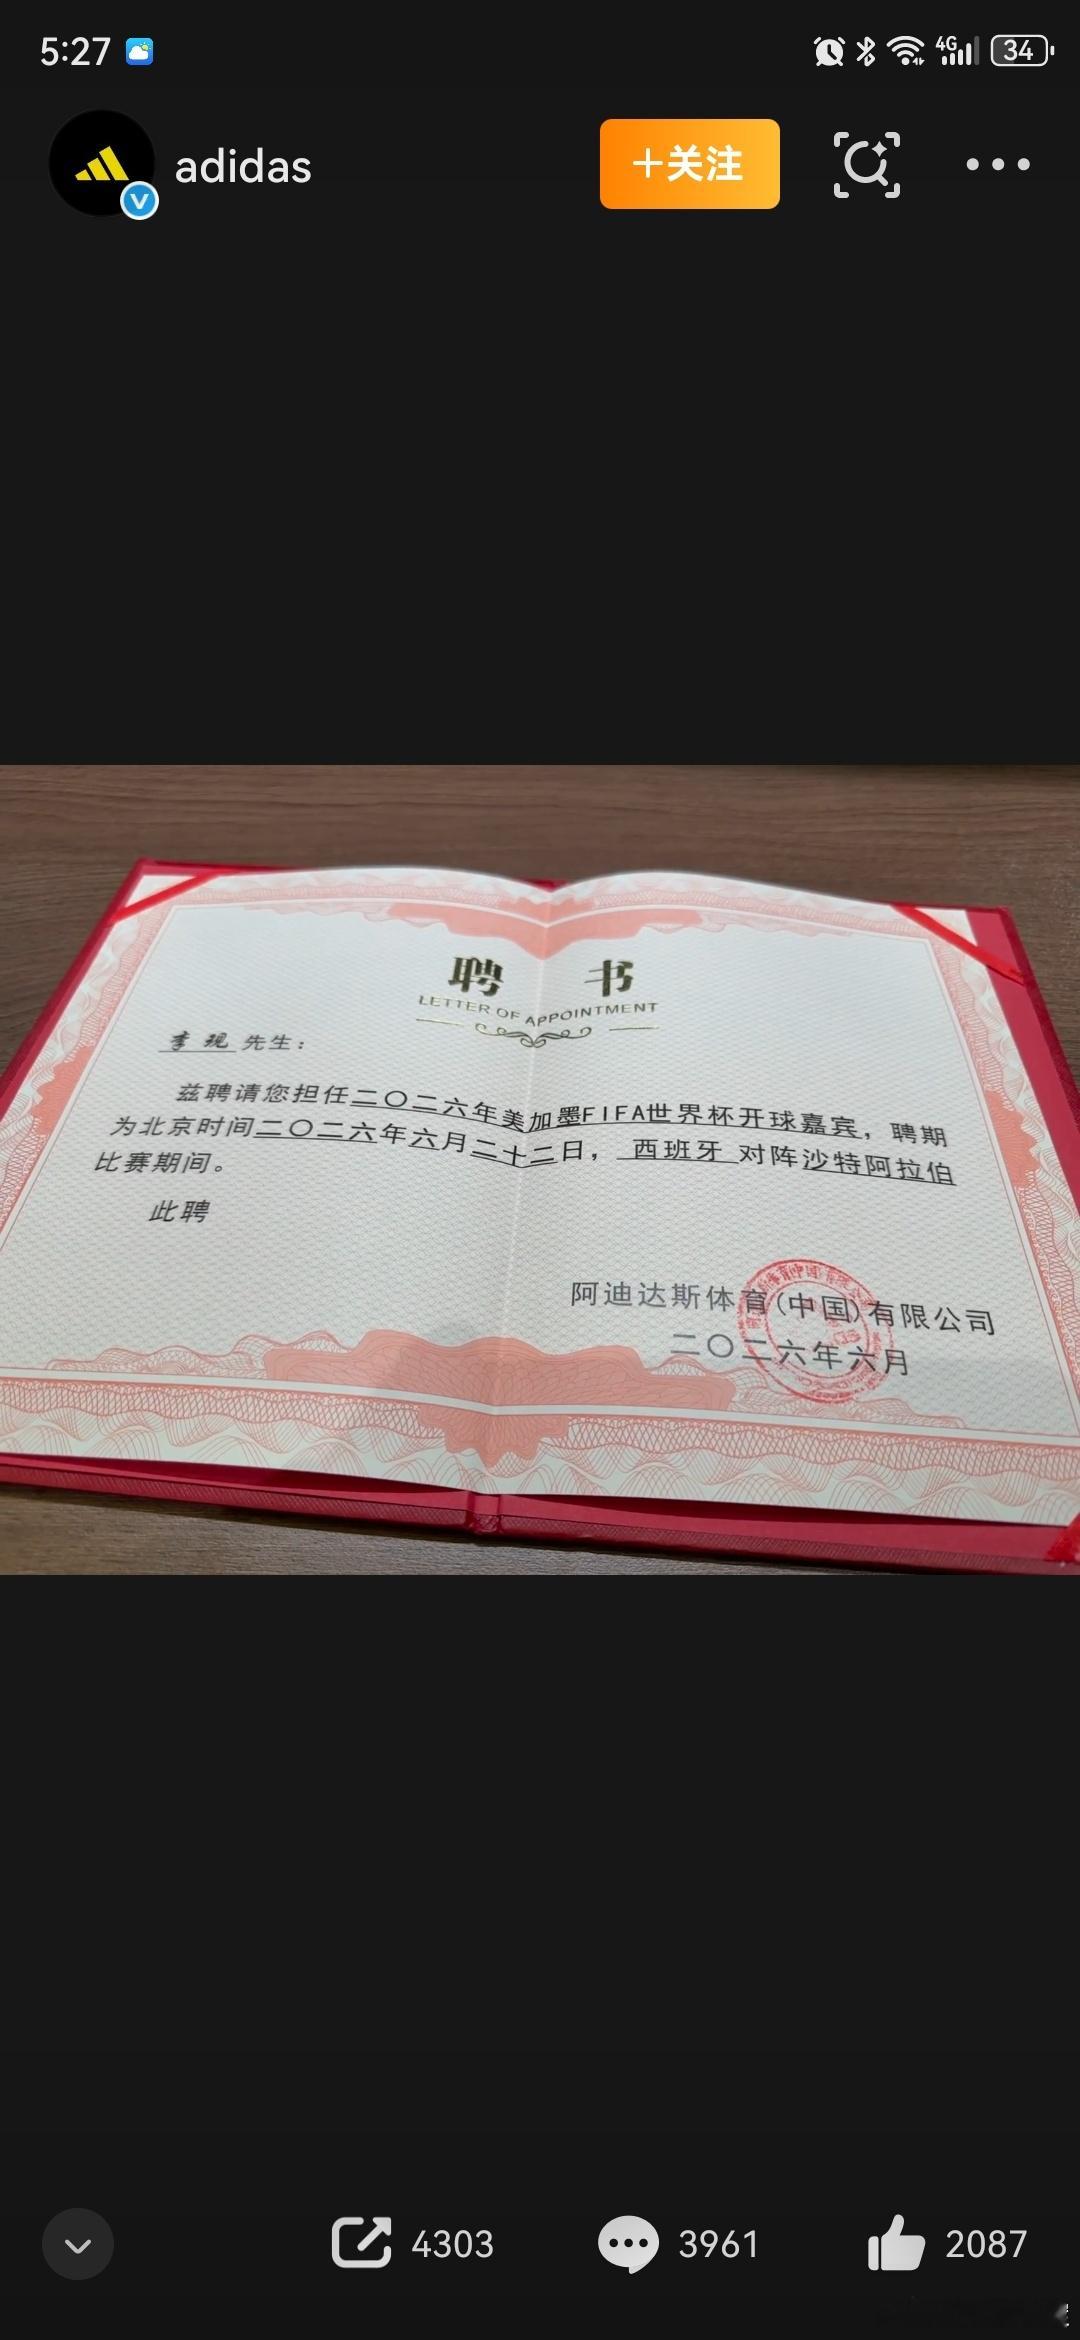 5:27
4G
34
adidas
+关注
聘 书
LETTER OF APPOINTMENT
李现 先生：
兹聘请您担任二〇二六年美加墨FIFA世界杯开球嘉宾，聘期
为北京时间二〇二六年六月二十二日， 西班牙 对阵沙特阿拉伯
比赛期间。
此聘
阿迪达斯体育(中国)有限公司
二〇二六年六月
4303
3961
2087